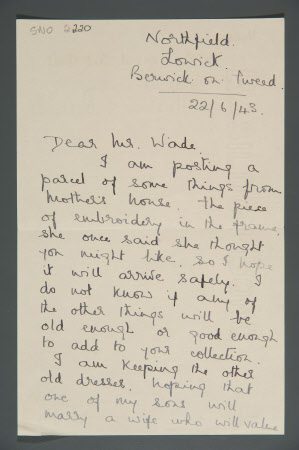 SNO 2220
Northfield.
Lowick.
Berwick on Tweed.
22/6/43.
Dear Mr. Wade.
I am posting a
parcel of some things from
Mother's house. The piece
of embroidery in the frame,
she once said she thought
you might like. So I hope
it will arrive safely. I
do not know if any of
the other things will be
old enough or good enough
to add to your collection.
I am keeping the other
old dresses. hoping that
one of my sons will
marry a wife who will value